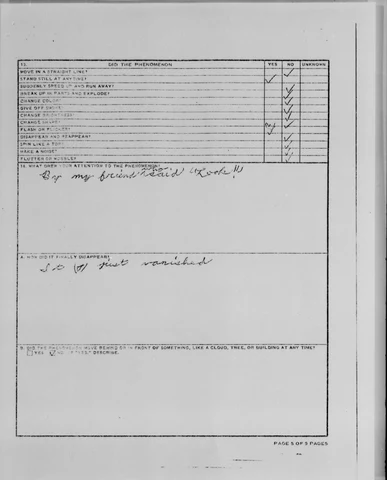 13. DID THE PHENOMENON YES NO UNKNOWN
MOVE IN A STRAIGHT LINE?
STAND STILL AT ANYTIME?
SUDDENLY SPEED UP AND RUN AWAY?
BREAK UP IN PARTS AND EXPLODE?
CHANGE COLOR?
GIVE OFF SMOKE?
CHANGE BRIGHTNESS?
CHANGE SHAPE?
FLASH OR FLICKER?
DISAPPEAR AND REAPPEAR?
SPIN LIKE A TOP?
MAKE A NOISE?
FLUTTER OR WOBBLE?
14. WHAT DREW YOUR ATTENTION TO THE PHENOMENON?
By my friend said "Look!"
A. HOW DID IT FINALLY DISAPPEAR?
It just vanished
B. DID THE PHENOMENON MOVE BEHIND OR IN FRONT OF SOMETHING, LIKE A CLOUD, TREE, OR BUILDING AT ANY TIME?
YES NO IF "YES" DESCRIBE.
PAGE 5 OF 9 PAGES